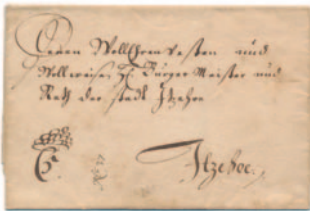 Denen WollEhrenvesten und
Wollweisen H. Bürger Meister und
Rath der stadt Itzehoe
Itzehoe.